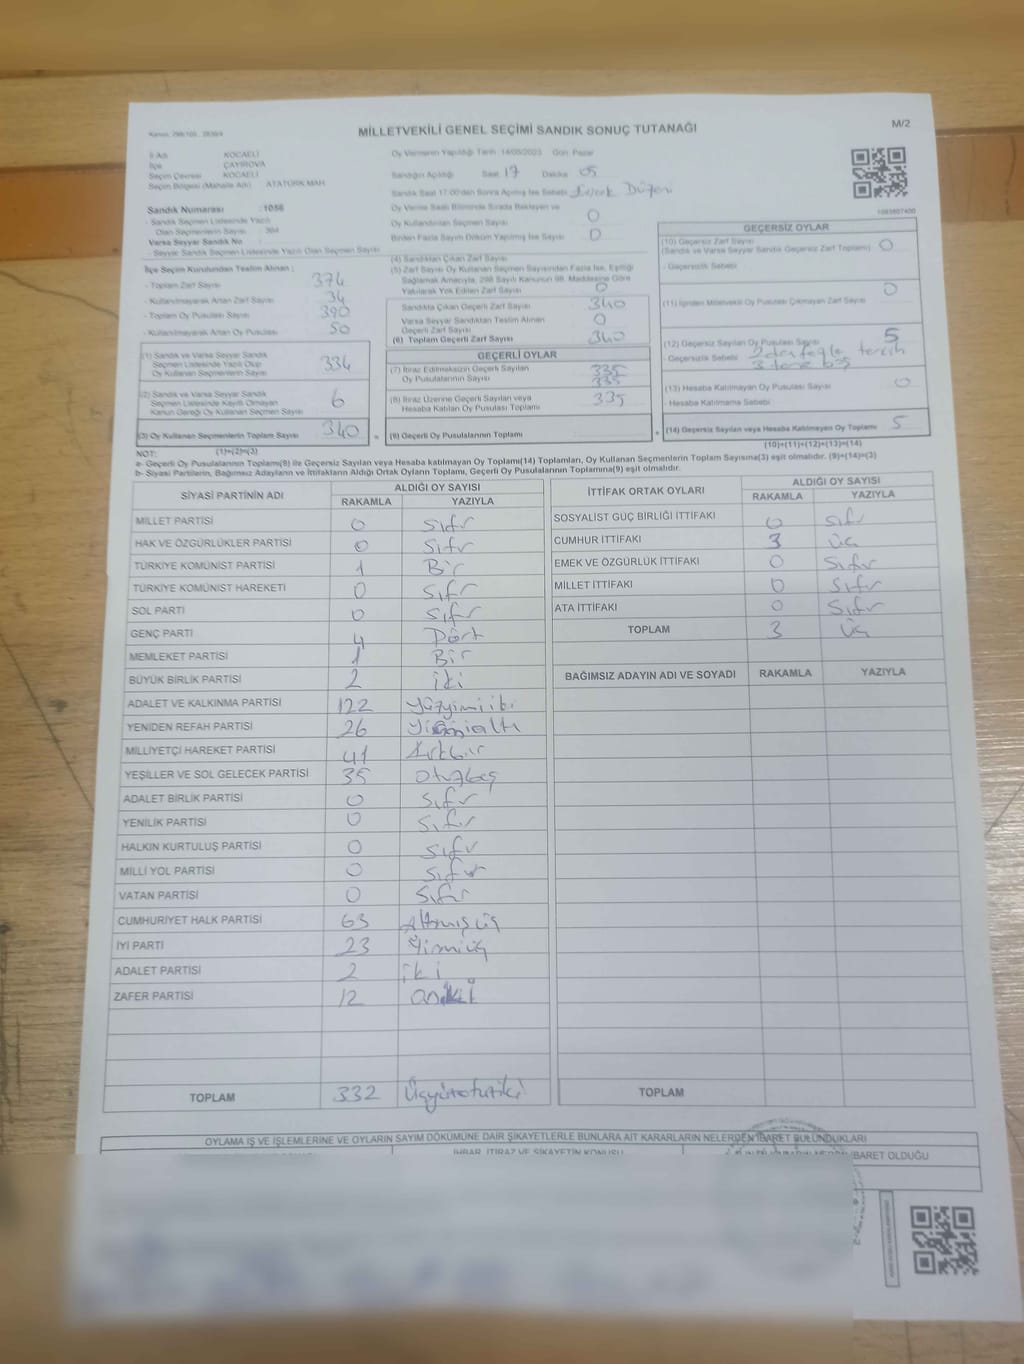 Kanun: 298/105, 2839/4
MİLLETVEKİLİ GENEL SEÇİMİ SANDIK SONUÇ TUTANAĞI
M/2
İl Adı KOCAELİ
İlçe ÇAYIROVA
Seçim Çevresi KOCAELİ
Seçim Bölgesi (Mahalle Adı) ATATÜRK MAH.
Sandık Numarası : 1056
- Sandık Seçmen Listesinde Yazılı
Olan Seçmenlerin Sayısı : 364
Varsa Seyyar Sandık No
- Seyyar Sandık Seçmen Listesinde Yazılı Olan Seçmen Sayısı
Oy Vermenin Yapıldığı Tarih :14/05/2023 Gün: Pazar
Sandığın Açıldığı Saat 17 Dakika 05
Sandık Saat 17:00'den Sonra Açılmış İse Sebebi Düzeni
Oy Verme Saati Bitiminde Sırada Bekleyen ve
Oy Kullandırılan Seçmen Sayısı 0
Birden Fazla Sayım Döküm Yapılmış İse Sayısı 0
1083807400
İlçe Seçim Kurulundan Teslim Alınan ;
- Toplam Zarf Sayısı 374
- Kullanılmayarak Artan Zarf Sayısı 34
- Toplam Oy Pusulası Sayısı 390
- Kullanılmayarak Artan Oy Pusulası 50
(1) Sandık ve Varsa Seyyar Sandık
Seçmen Listesinde Yazılı Olup
Oy Kullanan Seçmenlerin Sayısı 334
(2) Sandık ve Varsa Seyyar Sandık
Seçmen Listesinde Kayıtlı Olmayan
Kanun Gereği Oy Kullanan Seçmen Sayısı 6
(3) Oy Kullanan Seçmenlerin Toplam Sayısı 340
(1)+(2)=(3)
(4) Sandıktan Çıkan Zarf Sayısı
(5) Zarf Sayısı Oy Kullanan Seçmen Sayısından Fazla İse, Eşitliği
Sağlamak Amacıyla, 298 Sayılı Kanunun 98. Maddesine Göre
Yakılarak Yok Edilen Zarf Sayısı 0
Sandıkta Çıkan Geçerli Zarf Sayısı 340
Varsa Seyyar Sandıktan Teslim Alınan
Geçerli Zarf Sayısı 0
(6) Toplam Geçerli Zarf Sayısı 340
GEÇERLİ OYLAR
(7) İtiraz Edilmeksizin Geçerli Sayılan
Oy Pusulalarının Sayısı 335
335
(8) İtiraz Üzerine Geçerli Sayılan veya
Hesaba Katılan Oy Pusulası Toplamı 335
(9) Geçerli Oy Pusulalarının Toplamı
GEÇERSİZ OYLAR
(10) Geçersiz Zarf Sayısı
(Sandık ve Varsa Seyyar Sandık Geçersiz Zarf Toplamı) 0
- Geçersizlik Sebebi
(11) İçinden Milletvekili Oy Pusulası Çıkmayan Zarf Sayısı 0
(12) Geçersiz Sayılan Oy Pusulası Sayısı 5
- Geçersizlik Sebebi 2 den fazla tercih
3 tane boş
(13) Hesaba Katılmayan Oy Pusulası Sayısı 0
- Hesaba Katılmama Sebebi
(14) Geçersiz Sayılan veya Hesaba Katılmayan Oy Toplamı 5
(10)+(11)+(12)+(13)=(14)
NOT:
a- Geçerli Oy Pusulalarının Toplamı(9) ile Geçersiz Sayılan veya Hesaba katılmayan Oy Toplamı(14) Toplamları, Oy Kullanan Seçmenlerin Toplam Sayısına(3) eşit olmalıdır. (9)+(14)=(3)
b- Siyasi Partilerin, Bağımsız Adayların ve İttifakların Aldığı Ortak Oyların Toplamı, Geçerli Oy Pusulalarının Toplamına(9) eşit olmalıdır.
SİYASİ PARTİNİN ADI ALDIĞI OY SAYISI
RAKAMLA YAZIYLA
MİLLET PARTİSİ 0 Sıfır
HAK VE ÖZGÜRLÜKLER PARTİSİ 0 Sıfır
TÜRKİYE KOMÜNİST PARTİSİ 1 Bir
TÜRKİYE KOMÜNİST HAREKETİ 0 Sıfır
SOL PARTİ 0 Sıfır
GENÇ PARTİ 4 Dört
MEMLEKET PARTİSİ 1 Bir
BÜYÜK BİRLİK PARTİSİ 2 iki
ADALET VE KALKINMA PARTİSİ 122 yüzyirmiiki
YENİDEN REFAH PARTİSİ 26 yirmialtı
MİLLİYETÇİ HAREKET PARTİSİ 41 Kırkbir
YEŞİLLER VE SOL GELECEK PARTİSİ 35 otuzbeş
ADALET BİRLİK PARTİSİ 0 Sıfır
YENİLİK PARTİSİ 0 Sıfır
HALKIN KURTULUŞ PARTİSİ 0 Sıfır
MİLLİ YOL PARTİSİ 0 Sıfır
VATAN PARTİSİ 0 Sıfır
CUMHURİYET HALK PARTİSİ 63 Altmışüç
İYİ PARTİ 23 Yirmiüç
ADALET PARTİSİ 2 iki
ZAFER PARTİSİ 12 oniki
TOPLAM 332 Üçyüzotuziki
İTTİFAK ORTAK OYLARI ALDIĞI OY SAYISI
RAKAMLA YAZIYLA
SOSYALİST GÜÇ BİRLİĞİ İTTİFAKI 0 Sıfır
CUMHUR İTTİFAKI 3 üç
EMEK VE ÖZGÜRLÜK İTTİFAKI 0 Sıfır
MİLLET İTTİFAKI 0 Sıfır
ATA İTTİFAKI 0 Sıfır
TOPLAM 3 üç
BAĞIMSIZ ADAYIN ADI VE SOYADI RAKAMLA YAZIYLA
TOPLAM
OYLAMA İŞ VE İŞLEMLERİNE VE OYLARIN SAYIM DÖKÜMÜNE DAİR ŞİKAYETLERLE BUNLARA AİT KARARLARIN NELERDEN İBARET BULUNDUKLARI
İHBAR, İTİRAZ VE ŞİKAYETİN KONUSU
İBARET OLDUĞU